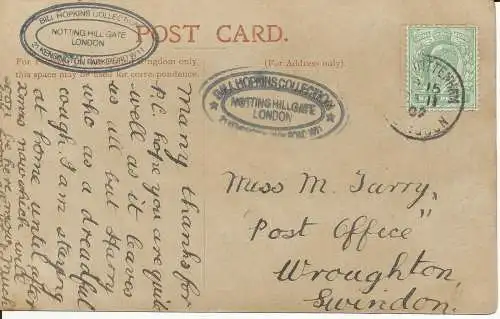 BILL HOPKINS COLLECTION
NOTTING HILL GATE
LONDON
21 KENSINGTON PARK ROAD W11
POST CARD.
Kingdom only,
this space may be used for correspondence.
(For Address only.)
BILL HOPKINS COLLECTION
NOTTING HILL GATE
LONDON
Many thanks for
P.C. hope you are quite
well as it leaves
us all but Harry
who as a dreadful
cough I am staying
at home until after
Xmas now which will
soon be here now. Must
Miss M. Tarry,
"Post Office"
Wroughton,
Swindon.